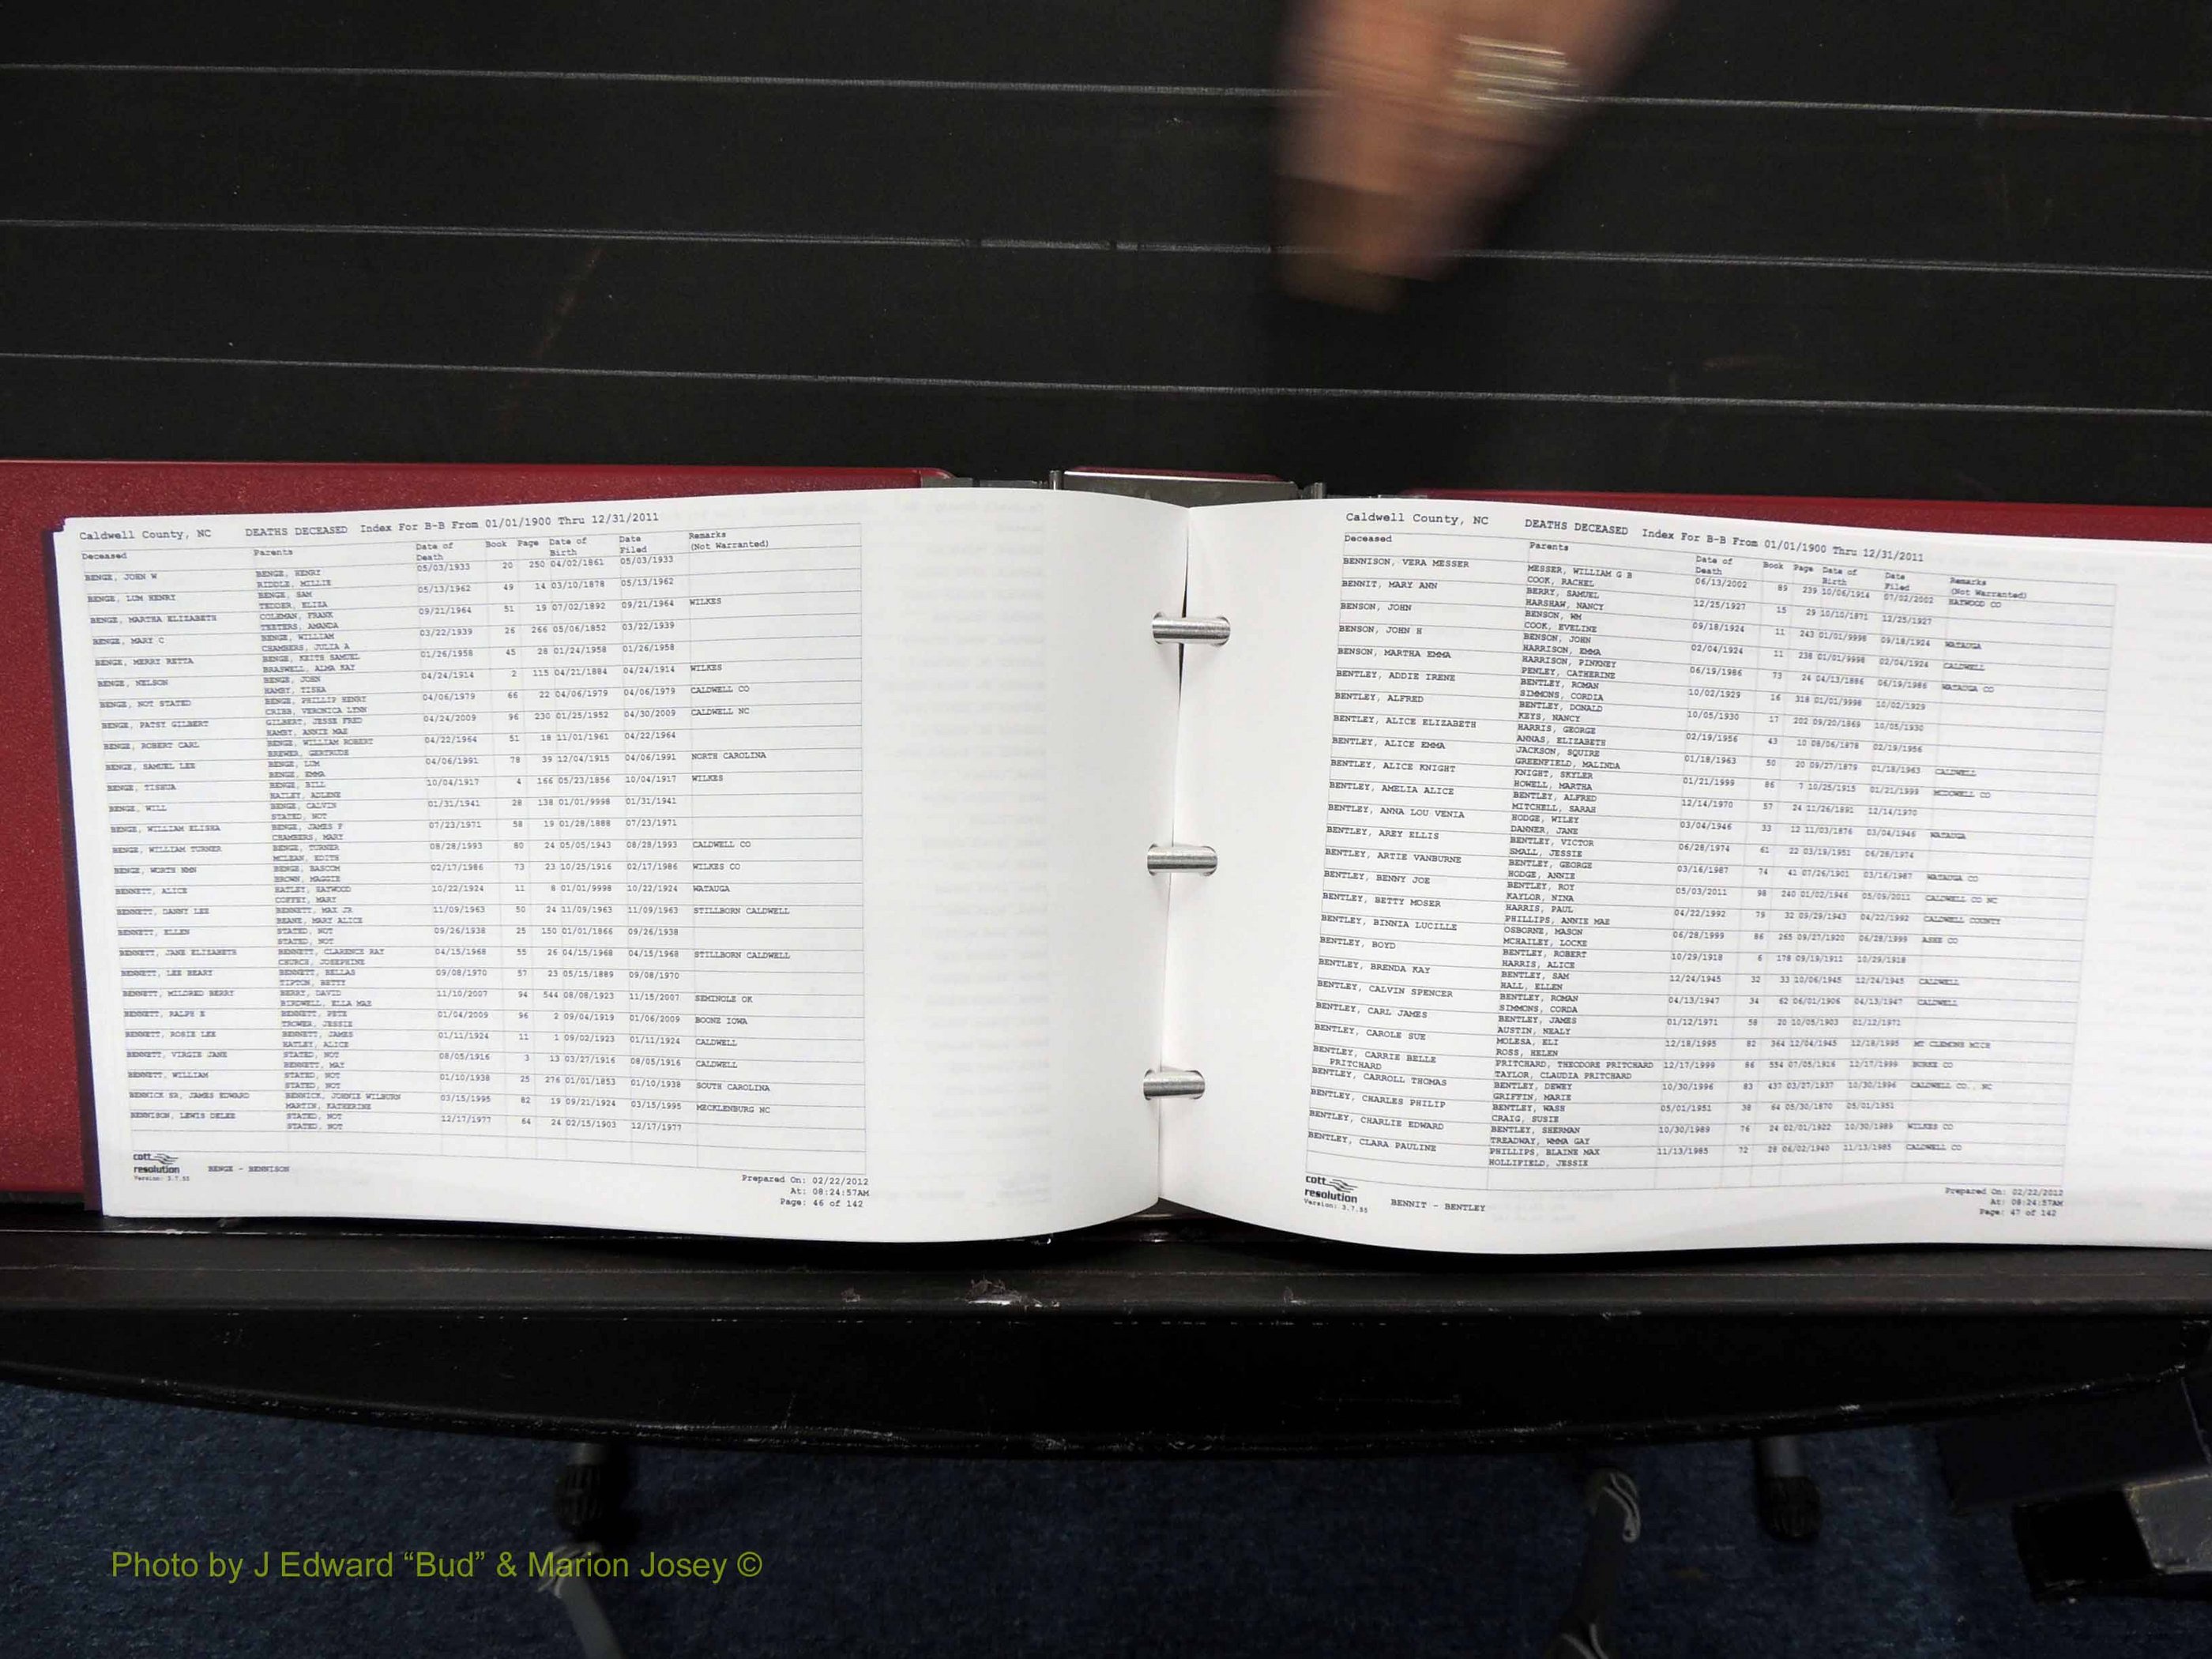 Caldwell County, NC DEATHS DECEASED Index For B-B From 01/01/1900 Thru 12/31/2011
Deceased Parents Date of Death Book Page Date of Birth Date Filed Remarks (Not Warranted)
BENGE, JOHN W BENGE, HENRY 05/03/1933 20 250 04/02/1861 05/03/1933
RIDDLE, MILLIE
BENGE, LUM HENRY BENGE, SAM 05/13/1962 49 14 03/10/1878 05/13/1962
TEDDER, ELIZA
BENGE, MARTHA ELIZABETH COLEMAN, FRANK 09/21/1964 51 19 07/02/1892 09/21/1964 WILKES
TEETERS, AMANDA
BENGE, MARY C BENGE, WILLIAM 03/22/1939 26 266 05/06/1852 03/22/1939
CHAMBERS, JULIA A
BENGE, MERRY RETTA BENGE, KEITH SAMUEL 01/26/1958 45 28 01/24/1958 01/26/1958
BRASWELL, ALMA KAY
BENGE, NELSON BENGE, JOHN 04/24/1914 2 115 04/21/1884 04/24/1914 WILKES
HAMBY, TISHA
BENGE, NOT STATED BENGE, PHILLIP HENRY 04/06/1979 66 22 04/06/1979 04/06/1979 CALDWELL CO
CRIBB, VERONICA LYNN
BENGE, PATSY GILBERT GILBERT, JESSE FRED 04/24/2009 96 230 01/25/1952 04/30/2009 CALDWELL NC
HAMBY, ANNIE MAE
BENGE, ROBERT CARL BENGE, WILLIAM ROBERT 04/22/1964 51 18 11/01/1961 04/22/1964
BREWER, GERTRUDE
BENGE, SAMUEL LEE BENGE, LUM 04/06/1991 78 39 12/04/1915 04/06/1991 NORTH CAROLINA
BENGE, EMMA
BENGE, TISHUA BENGE, BILL 10/04/1917 4 166 05/23/1856 10/04/1917 WILKES
HAILEY, ADLENE
BENGE, WILL BENGE, CALVIN 01/31/1941 28 138 01/01/9998 01/31/1941
STATED, NOT
BENGE, WILLIAM ELISHA BENGE, JAMES F 07/23/1971 58 19 01/28/1888 07/23/1971
CHAMBERS, MARY
BENGE, WILLIAM TURNER BENGE, TURNER 08/28/1993 80 24 05/05/1943 08/28/1993 CALDWELL CO
MCLEAN, EDITH
BENGE, WORTH NMN BENGE, BASCOM 02/17/1986 73 23 10/25/1916 02/17/1986 WILKES CO
BROWN, MAGGIE
BENNETT, ALICE HATLEY, HAYWOOD 10/22/1924 11 8 01/01/9998 10/22/1924 WATAUGA
COFFEY, MARY
BENNETT, DANNY LEE BENNETT, MAX JR 11/09/1963 50 24 11/09/1963 11/09/1963 STILLBORN CALDWELL
BEANE, MARY ALICE
BENNETT, ELLEN STATED, NOT 09/26/1938 25 150 01/01/1866 09/26/1938
STATED, NOT
BENNETT, JANE ELIZABETH BENNETT, CLARENCE RAY 04/15/1968 55 26 04/15/1968 04/15/1968 STILLBORN CALDWELL
CHURCH, JOSEPHINE
BENNETT, LEE BEARY BENNETT, BELLAS 09/08/1970 57 23 05/15/1889 09/08/1970
TIPTON, BETTY
BENNETT, MILDRED BERRY BERRY, DAVID 11/10/2007 94 544 08/08/1923 11/15/2007 SEMINOLE OK
BIRDWELL, ELLA MAE
BENNETT, RALPH E BENNETT, PETE 01/04/2009 96 2 09/04/1919 01/06/2009 BOONE IOWA
TROWER, JESSIE
BENNETT, ROSIE LEE BENNETT, JAMES 01/11/1924 11 1 09/02/1923 01/11/1924 CALDWELL
HATLEY, ALICE
BENNETT, VIRGIE JANE STATED, NOT 08/05/1916 3 13 03/27/1916 08/05/1916 CALDWELL
BENNETT, MAY
BENNETT, WILLIAM STATED, NOT 01/10/1938 25 276 01/01/1853 01/10/1938 SOUTH CAROLINA
STATED, NOT
BENNICK SR, JAMES EDWARD BENNICK, JOHNIE WILBURN 03/15/1995 82 19 09/21/1924 03/15/1995 MECKLENBURG NC
MARTIN, KATHERINE
BENNISON, LEWIS DELEE STATED, NOT 12/17/1977 64 24 02/15/1903 12/17/1977
STATED, NOT
cott
resolution BENGE - BENNISON
Version: 3.7.55
Prepared On: 02/22/2012
At: 08:24:57AM
Page: 46 of 142
Caldwell County, NC DEATHS DECEASED Index For B-B From 01/01/1900 Thru 12/31/2011
Deceased Parents Date of Death Book Page Date of Birth Date Filed Remarks (Not Warranted)
BENNISON, VERA MESSER MESSER, WILLIAM G B 06/13/2002 89 239 10/06/1914 07/02/2002 HAYWOOD CO
COOK, RACHEL
BENNIT, MARY ANN BERRY, SAMUEL 12/25/1927 15 29 10/10/1871 12/25/1927
HARSHAW, NANCY
BENSON, JOHN BENSON, WM 09/18/1924 11 243 01/01/9998 09/18/1924 WATAUGA
COOK, EVELINE
BENSON, JOHN H BENSON, JOHN 02/04/1924 11 238 01/01/9998 02/04/1924 CALDWELL
HARRISON, EMMA
BENSON, MARTHA EMMA HARRISON, PINKNEY 06/19/1986 73 24 04/13/1886 06/19/1986 WATAUGA CO
PENLEY, CATHERINE
BENTLEY, ADDIE IRENE BENTLEY, ROMAN 10/02/1929 16 318 01/01/9998 10/02/1929
SIMMONS, CORDIA
BENTLEY, ALFRED BENTLEY, DONALD 10/05/1930 17 202 09/20/1869 10/05/1930
KEYS, NANCY
BENTLEY, ALICE ELIZABETH HARRIS, GEORGE 02/19/1956 43 10 08/06/1878 02/19/1956
ANNAS, ELIZABETH
BENTLEY, ALICE EMMA JACKSON, SQUIRE 01/18/1963 50 20 09/27/1879 01/18/1963 CALDWELL
GREENFIELD, MALINDA
BENTLEY, ALICE KNIGHT KNIGHT, SKYLER 01/21/1999 86 7 10/25/1915 01/21/1999 MCDOWELL CO
HOWELL, MARTHA
BENTLEY, AMELIA ALICE BENTLEY, ALFRED 12/14/1970 57 24 11/26/1891 12/14/1970
MITCHELL, SARAH
BENTLEY, ANNA LOU VENIA HODGE, WILEY 03/04/1946 33 12 11/03/1876 03/04/1946 WATAUGA
DANNER, JANE
BENTLEY, AREY ELLIS BENTLEY, VICTOR 06/28/1974 61 22 03/19/1951 06/28/1974
SMALL, JESSIE
BENTLEY, ARTIE VANBURNE BENTLEY, GEORGE 03/16/1987 74 41 07/26/1901 03/16/1987 WATAUGA CO
HODGE, ANNIE
BENTLEY, BENNY JOE BENTLEY, ROY 05/03/2011 98 240 01/02/1946 05/09/2011 CALDWELL CO NC
KAYLOR, NINA
BENTLEY, BETTY MOSER HARRIS, PAUL 04/22/1992 79 32 09/29/1943 04/22/1992 CALDWELL COUNTY
PHILLIPS, ANNIE MAE
BENTLEY, BINNIA LUCILLE OSBORNE, MASON 06/28/1999 86 265 09/27/1920 06/28/1999 ASHE CO
MCHAILEY, LOCKE
BENTLEY, BOYD BENTLEY, ROBERT 10/29/1918 6 178 09/19/1911 10/29/1918
HARRIS, ALICE
BENTLEY, BRENDA KAY BENTLEY, SAM 12/24/1945 32 33 10/06/1945 12/24/1945 CALDWELL
HALL, ELLEN
BENTLEY, CALVIN SPENCER BENTLEY, ROMAN 04/13/1947 34 62 06/01/1906 04/13/1947 CALDWELL
SIMMONS, CORDA
BENTLEY, CARL JAMES BENTLEY, JAMES 01/12/1971 58 20 10/05/1903 01/12/1971
AUSTIN, NEALY
BENTLEY, CAROLE SUE MOLESA, ELI 12/18/1995 82 364 12/04/1945 12/18/1995 MT CLEMONS MICH
ROSS, HELEN
BENTLEY, CARRIE BELLE PRITCHARD, THEODORE PRITCHARD 12/17/1999 86 554 07/05/1916 12/17/1999 BURKE CO
PRITCHARD TAYLOR, CLAUDIA PRITCHARD
BENTLEY, CARROLL THOMAS BENTLEY, DEWEY 10/30/1996 83 437 03/27/1937 10/30/1996 CALDWELL CO., NC
GRIFFIN, MARIE
BENTLEY, CHARLES PHILIP BENTLEY, WASH 05/01/1951 38 64 05/30/1870 05/01/1951
CRAIG, SUSIE
BENTLEY, CHARLIE EDWARD BENTLEY, SHERMAN 10/30/1989 76 24 02/01/1922 10/30/1989 WILKES CO
TREADWAY, WMMA GAY
BENTLEY, CLARA PAULINE PHILLIPS, BLAINE MAX 11/13/1985 72 28 06/02/1940 11/13/1985 CALDWELL CO
HOLLIFIELD, JESSIE
cott
resolution BENNIT - BENTLEY
Version: 3.7.55
Prepared On: 02/22/2012
At: 08:24:57AM
Page: 47 of 142
Photo by J Edward “Bud” & Marion Josey ©